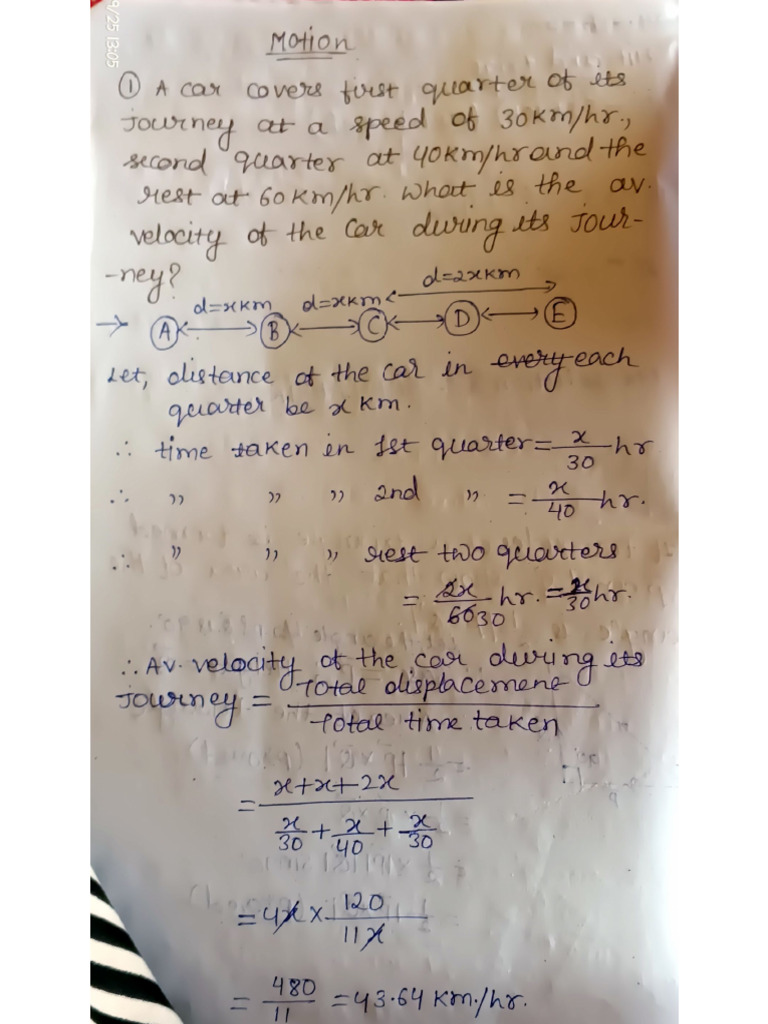 9/25 13:05
Motion
① A car covers first quarter of its
journey at a speed of 30km/hr.,
second quarter at 40km/hr and the
rest at 60km/hr. What is the av.
velocity of the car during its jour-
-ney?
d=2xkm
d=xkm d=xkm
→ A B C D E
Let, distance of the car in every each
quarter be x km.
∴ time taken in 1st quarter = x/30 hr
∴ " " " 2nd " = x/40 hr.
∴ " " " rest two quarters
= 2x/60 30 hr. = x/30 hr.
∴ Av. velocity of the car during its
journey = Total displacement / Total time taken
= x+x+2x / x/30 + x/40 + x/30
= 4x × 120/11x
= 480/11 = 43.64 km./hr.